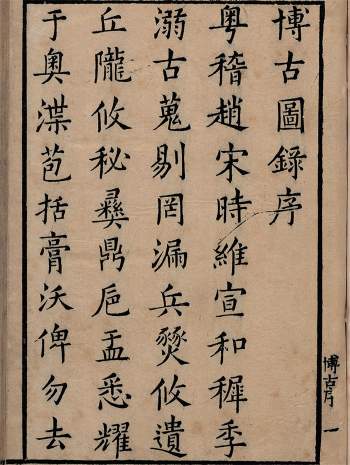 博古圖錄序
粵稽趙宋時維宣和稺季
溺古蒐剔罔漏兵燹攸遺
丘隴攸秘彞鼎巵盂悉耀
于奧渫苞括膏沃俾勿去
博古序 一